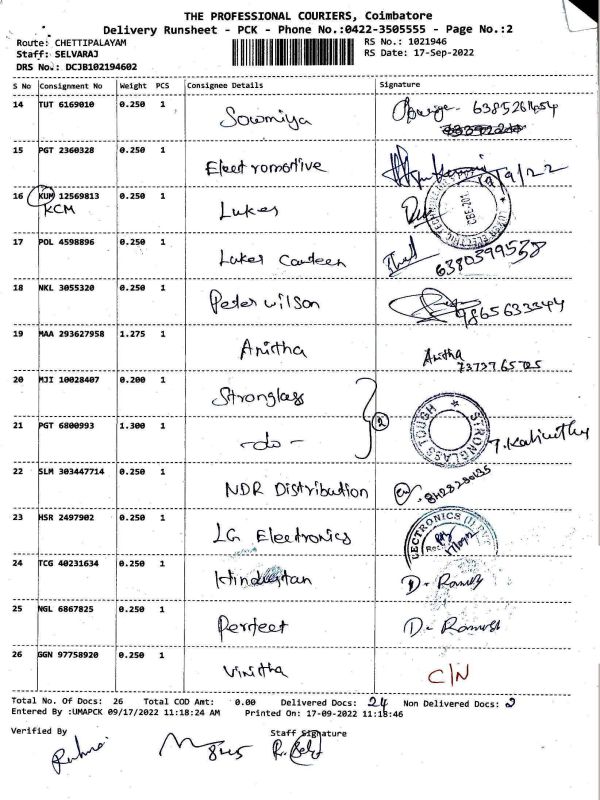 THE PROFESSIONAL COURIERS, Coimbatore
Delivery Runsheet - PCK - Phone No.:0422-3505555 - Page No.:2
Route: CHETTIPALAYAM RS No.: 1021946
Staff: SELVARAJ RS Date: 17-Sep-2022
DRS No.: DCJB102194602
S No Consignment No Weight PCS Consignee Details Signature
14 TUT 6169010 0.250 1 Sowmiya
15 PGT 2360328 0.250 1 Electromotive
16 KUM 12569813 0.250 1 Lukes
KCM
17 POL 4598896 0.250 1 Lukes Canteen 6380399538
18 NKL 3055320 0.250 1 Peter Wilson 9865633344
19 MAA 293627958 1.275 1 Anitha Anitha
20 MJI 10028407 0.200 1 Stronglass
2
21 PGT 6800993 1.300 1 -do- STRONGLASS TOUGH
22 SLM 303447714 0.250 1 NDR Distribution
23 HSR 2497902 0.250 1 LG Electronics
24 TCG 40231634 0.250 1 Hindustan D. Ramesh
25 NGL 6867825 0.250 1 Perfect D. Ramesh
26 GGN 97758920 0.250 1 Vinitha C/N
Total No. Of Docs: 26 Total COD Amt: 0.00 Delivered Docs: 24 Non Delivered Docs: 2
Entered By :UMAPCK 09/17/2022 11:18:24 AM Printed On: 17-09-2022 11:18:46
Verified By Staff Signature